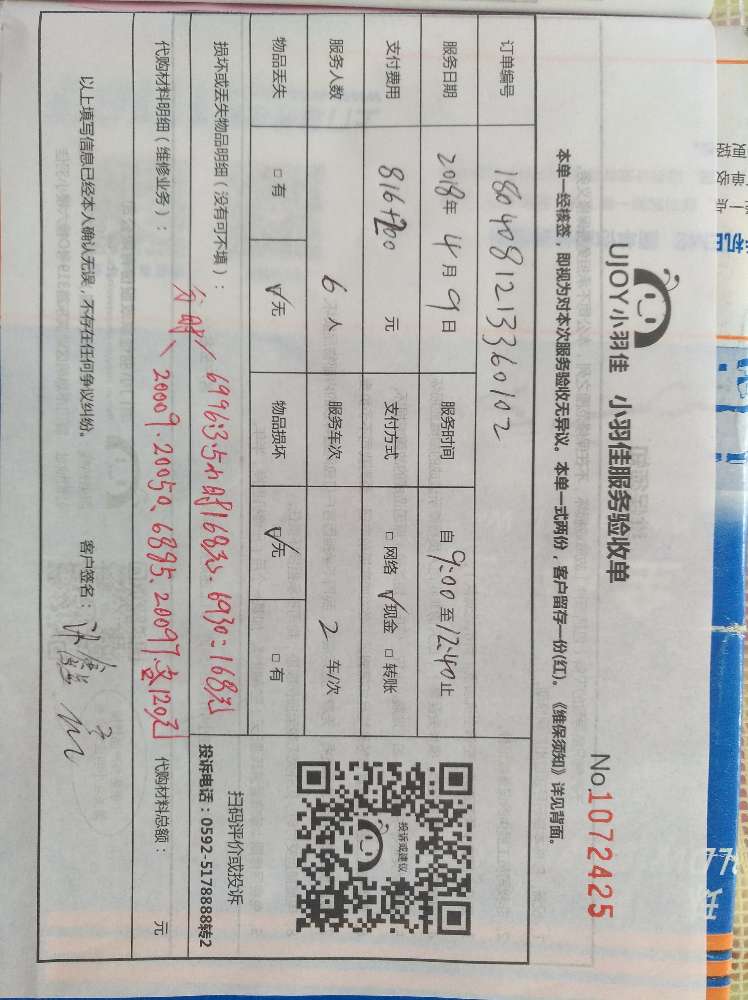 UJOY小羽佳 小羽佳服务验收单
No.1072425
本单一经核签，即视为对本次服务验收无异议。本单一式两份，客户留存一份(红)。《维保须知》详见背面。
订单编号 1804081213360102
服务日期 2018年 4月 9日 服务时间 自 9:00 至 12:40 止
支付费用 816+200 元 支付方式 □ 网络 ☑ 现金 □ 转账
服务人数 6 人 服务车次 2 车/次
物品丢失 □ 有 ☑ 无 物品损坏 ☑ 无 □ 有
损坏或丢失物品明细（没有可不填）：
6996:3.5小时168元、6930:168元
代购材料明细（维修业务）：
20009.20050.6895.20097.各120元
代购材料总额： 元
以上填写信息已经本人确认无误，不存在任何争议纠纷。
客户签名：
投诉或建议
扫码评价或投诉
投诉电话：0592-5178888转2